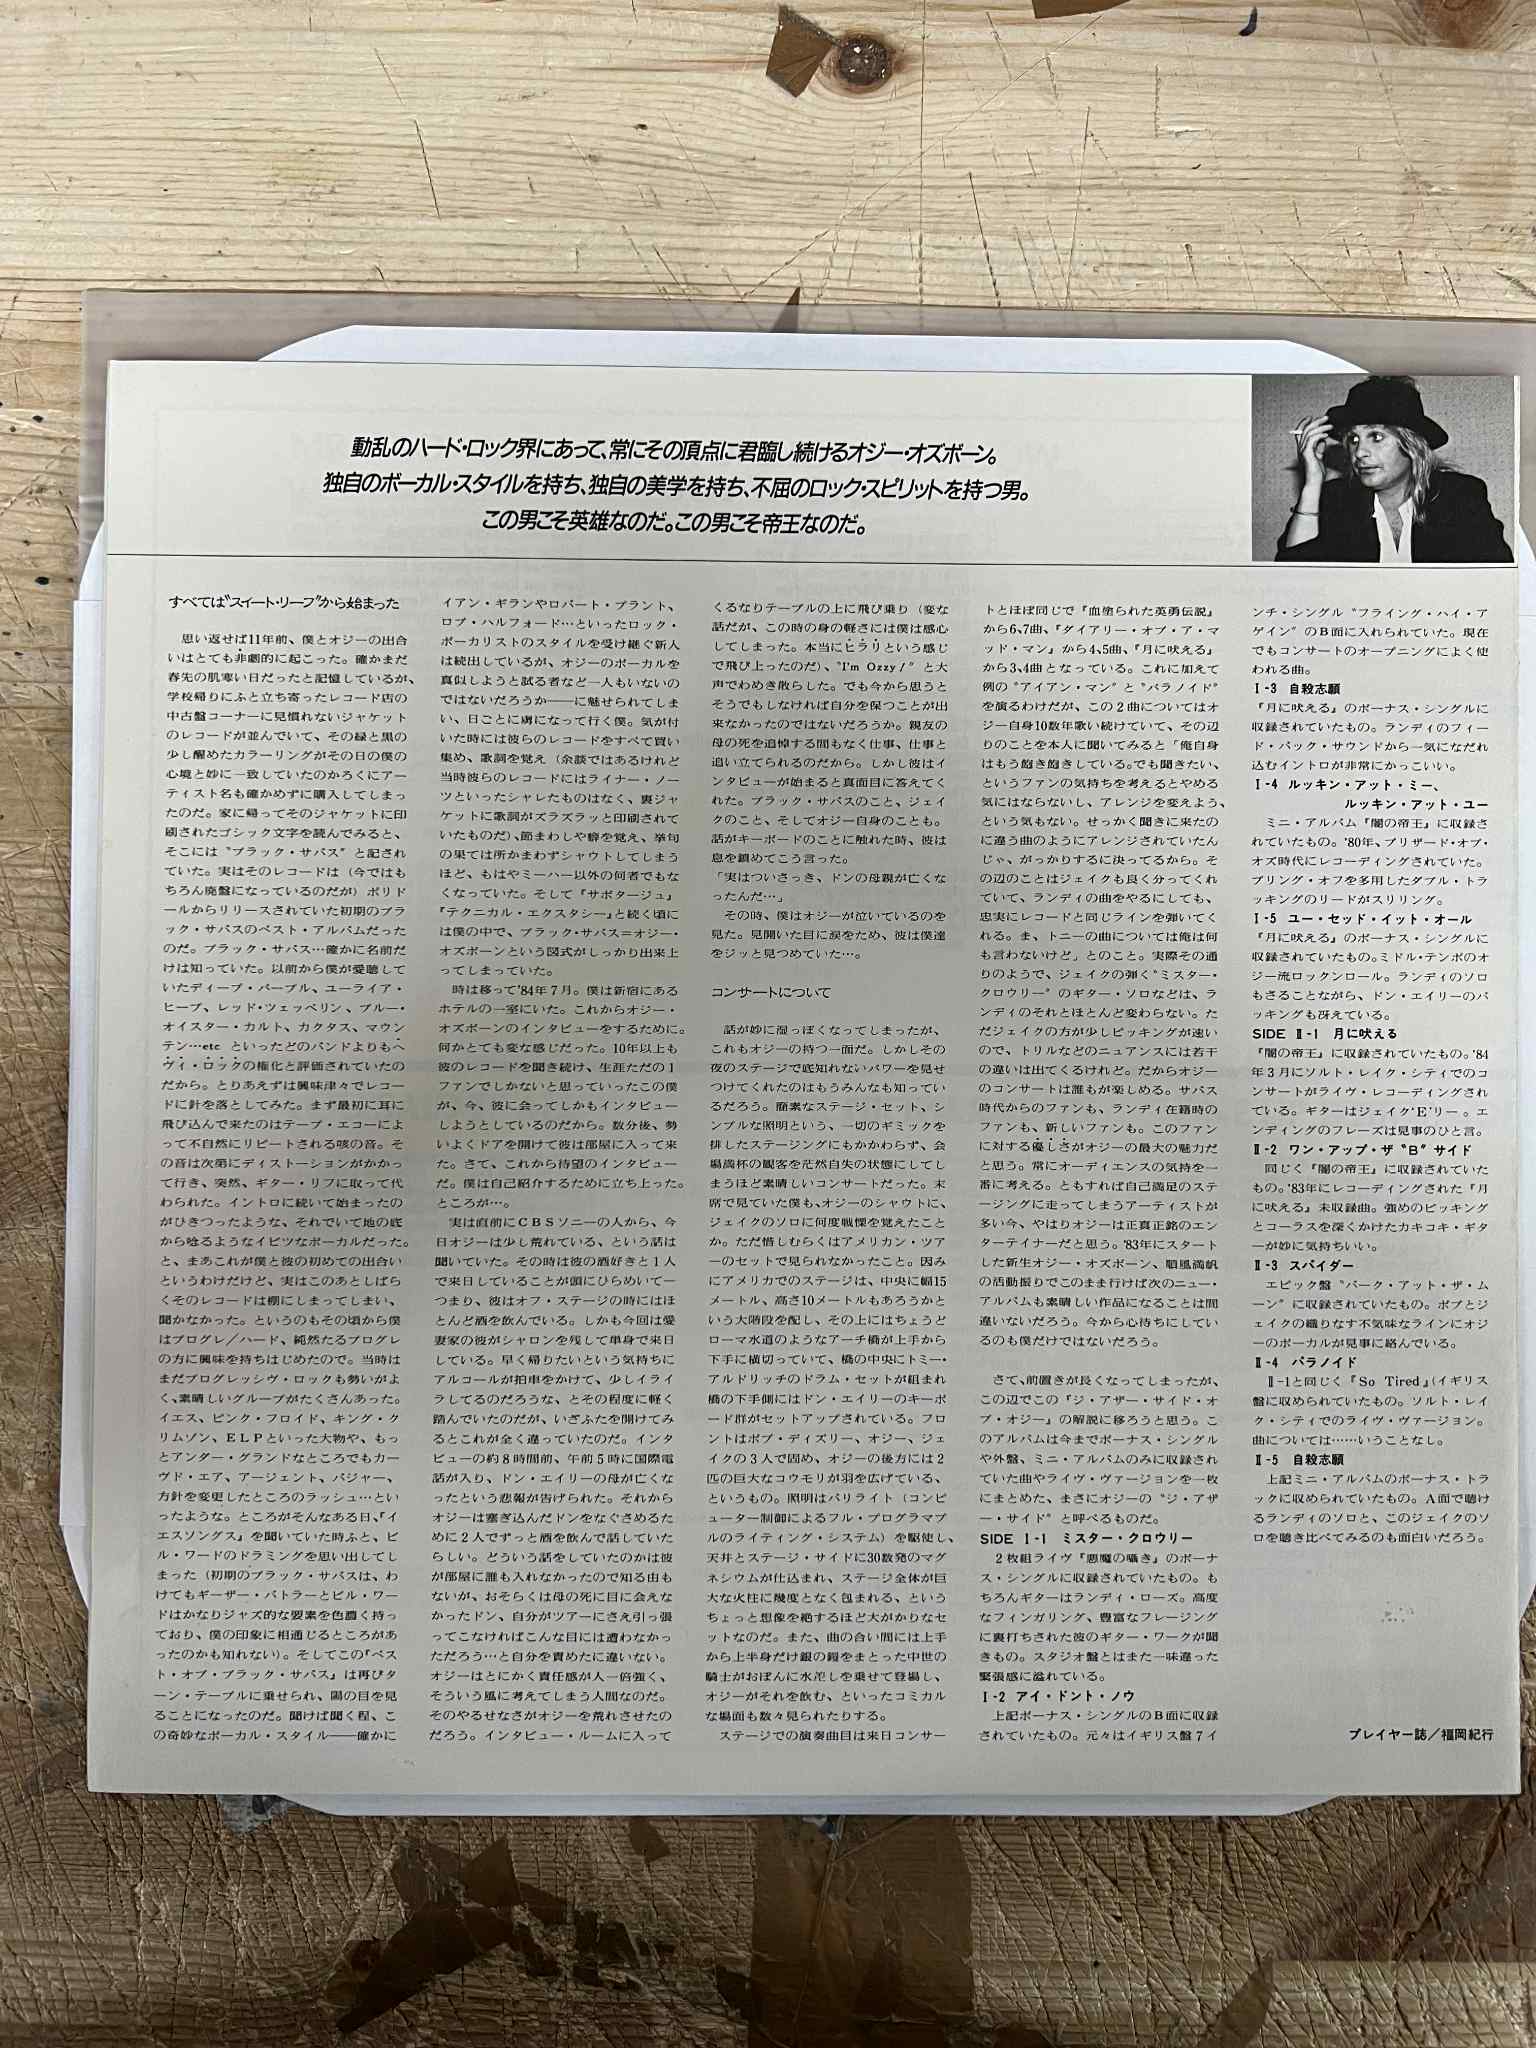 動乱のハード・ロック界にあって、常にその頂点に君臨し続けるオジー・オズボーン。
独自のボーカル・スタイルを持ち、独自の美学を持ち、不屈のロック・スピリットを持つ男。
この男こそ英雄なのだ。この男こそ帝王なのだ。
すべては〝スイート・リーフ〟から始まった
思い返せば11年前、僕とオジーの出合
いはとても非劇的に起こった。確かまだ
春先の肌寒い日だったと記憶しているが、
学校帰りにふと立ち寄ったレコード店の
中古盤コーナーに見慣れないジャケット
のレコードが並んでいて、その緑と黒の
少し醒めたカラーリングがその日の僕の
心境と妙に一致していたのかろくにアー
ティスト名も確かめずに購入してしまっ
たのだ。家に帰ってそのジャケットに印
刷されたゴシック文字を読んでみると、
そこには〝ブラック・サバス〟と記され
ていた。実はそのレコードは（今ではも
ちろん廃盤になっているのだが）ポリド
ールからリリースされていた初期のブラ
ック・サバスのベスト・アルバムだった
のだ。ブラック・サバス…確かに名前だ
けは知っていた。以前から僕が愛聴して
いたディープ・パープル、ユーライア・
ヒープ、レッド・ツェッペリン、ブルー・
オイスター・カルト、カクタス、マウン
テン…etc といったどのバンドよりもヘ
ヴィ・ロックの権化と評価されていたの
だから。とりあえずは興味津々でレコー
ドに針を落としてみた。まず最初に耳に
飛び込んで来たのはテープ・エコーによ
って不自然にリピートされる咳の音。そ
の音は次第にディストーションがかかっ
て行き、突然、ギター・リフに取って代
わられた。イントロに続いて始まったの
がひきつったような、それでいて地の底
から唸るようなイビツなボーカルだった。
と、まあこれが僕と彼の初めての出合い
というわけだけど、実はこのあとしばら
くそのレコードは棚にしまってしまい、
聞かなかった。というのもその頃から僕
はプログレ／ハード、純然たるプログレ
の方に興味を持ちはじめたので。当時は
まだプログレッシヴ・ロックも勢いがよ
く、素晴しいグループがたくさんあった。
イエス、ピンク・フロイド、キング・ク
リムゾン、ＥＬＰといった大物や、もっ
とアンダー・グランドなところでもカー
ヴド・エア、アージェント、バジャー、
方針を変更したところのラッシュ…とい
ったような。ところがそんなある日、『イ
エスソングス』を聞いていた時ふと、ビ
ル・ワードのドラミングを思い出してし
まった（初期のブラック・サバスは、わ
けてもギーザー・バトラーとビル・ワー
ドはかなりジャズ的な要素を色濃く持っ
ており、僕の印象に相通じるところがあ
ったのかも知れない）。そしてこの『ベス
ト・オブ・ブラック・サバス』は再びタ
ーン・テーブルに乗せられ、陽の目を見
ることになったのだ。聞けば聞く程、こ
の奇妙なボーカル・スタイル――確かに
イアン・ギランやロバート・プラント、
ロブ・ハルフォード…といったロック・
ボーカリストのスタイルを受け継ぐ新人
は続出しているが、オジーのボーカルを
真似しようと試る者など一人もいないの
ではないだろうか――に魅せられてしま
い、日ごとに虜になって行く僕。気が付
いた時には彼らのレコードをすべて買い
集め、歌詞を覚え（余談ではあるけれど
当時彼らのレコードにはライナー・ノー
ツといったシャレたものはなく、裏ジャ
ケットに歌詞がズラズラっと印刷されて
いたものだ）、節まわしや癖を覚え、挙句
の果ては所かまわずシャウトしてしまう
ほど、もはやミーハー以外の何者でもな
くなっていた。そして『サボタージュ』
『テクニカル・エクスタシー』と続く頃に
は僕の中で、ブラック・サバス＝オジー・
オズボーンという図式がしっかり出来上
ってしまっていた。
時は移って'84年７月。僕は新宿にある
ホテルの一室にいた。これからオジー・
オズボーンのインタビューをするために。
何かとても変な感じだった。10年以上も
彼のレコードを聞き続け、生涯ただの１
ファンでしかないと思っていったこの僕
が、今、彼に会ってしかもインタビュー
しようとしているのだから。数分後、勢
いよくドアを開けて彼は部屋に入って来
た。さて、これから待望のインタビュー
だ。僕は自己紹介するために立ち上った。
ところが…。
実は直前にＣＢＳソニーの人から、今
日オジーは少し荒れている、という話は
聞いていた。その時は彼の酒好きと１人
で来日していることが頭にひらめいて―
つまり、彼はオフ・ステージの時にはほ
とんど酒を飲んでいる。しかも今回は愛
妻家の彼がシャロンを残して単身で来日
している。早く帰りたいという気持ちに
アルコールが拍車をかけて、少しイライ
ラしてるのだろうな、とその程度に軽く
踏んでいたのだが、いざふたを開けてみ
るとこれが全く違っていたのだ。インタ
ビューの約８時間前、午前５時に国際電
話が入り、ドン・エイリーの母が亡くな
ったという悲報が告げられた。それから
オジーは塞ぎ込んだドンをなぐさめるた
めに２人でずっと酒を飲んで話していた
らしい。どういう話をしていたのかは彼
が部屋に誰も入れなかったので知る由も
ないが、おそらくは母の死に目に会えな
かったドン、自分がツアーにさえ引っ張
ってこなければこんな目には遭わなかっ
ただろう…と自分を責めたに違いない。
オジーはとにかく責任感が人一倍強く、
そういう風に考えてしまう人間なのだ。
そのやるせなさがオジーを荒れさせたの
だろう。インタビュー・ルームに入って
くるなりテーブルの上に飛び乗り（変な
話だが、この時の身の軽さには僕は感心
してしまった。本当にヒラリという感じ
で飛び上ったのだ）、〝I'm Ozzy！〟と大
声でわめき散らした。でも今から思うと
そうでもしなければ自分を保つことが出
来なかったのではないだろうか。親友の
母の死を追悼する間もなく仕事、仕事と
追い立てられるのだから。しかし彼はイ
ンタビューが始まると真面目に答えてく
れた。ブラック・サバスのこと、ジェイ
クのこと、そしてオジー自身のことも。
話がキーボードのことに触れた時、彼は
息を鎮めてこう言った。
「実はついさっき、ドンの母親が亡くな
ったんだ…」
その時、僕はオジーが泣いているのを
見た。見開いた目に涙をため、彼は僕達
をジッと見つめていた…。
コンサートについて
話が妙に湿っぽくなってしまったが、
これもオジーの持つ一面だ。しかしその
夜のステージで底知れないパワーを見せ
つけてくれたのはもうみんなも知ってい
るだろう。簡素なステージ・セット、シ
ンプルな照明という、一切のギミックを
排したステージングにもかかわらず、会
場満杯の観客を茫然自失の状態にしてし
まうほど素晴しいコンサートだった。末
席で見ていた僕も、オジーのシャウトに、
ジェイクのソロに何度戦慄を覚えたこと
か。ただ惜しむらくはアメリカン・ツア
ーのセットで見られなかったこと。因み
にアメリカでのステージは、中央に幅15
メートル、高さ10メートルもあろうかと
いう大階段を配し、その上にはちょうど
ローマ水道のようなアーチ橋が上手から
下手に横切っていて、橋の中央にトミー・
アルドリッチのドラム・セットが組まれ
橋の下手側にはドン・エイリーのキーボ
ード群がセットアップされている。フロ
ントはボブ・ディズリー、オジー、ジェ
イクの３人で固め、オジーの後方には２
匹の巨大なコウモリが羽を広げている、
というもの。照明はバリライト（コンピ
ューター制御によるフル・プログラマブ
ルのライティング・システム）を駆使し、
天井とステージ・サイドに30数発のマグ
ネシウムが仕込まれ、ステージ全体が巨
大な火柱に幾度となく包まれる、という
ちょっと想像を絶するほど大がかりなセ
ットなのだ。また、曲の合い間には上手
から上半身だけ銀の鎧をまとった中世の
騎士がおぼんに水差しを乗せて登場し、
オジーがそれを飲む、といったコミカル
な場面も数々見られたりする。
ステージでの演奏曲目は来日コンサー
トとほぼ同じで『血塗られた英勇伝説』
から6、7曲、『ダイアリー・オブ・ア・マ
ッド・マン』から4、5曲、『月に吠える』
から3、4曲となっている。これに加えて
例の〝アイアン・マン〟と〝パラノイド〟
を演るわけだが、この２曲についてはオ
ジー自身10数年歌い続けていて、その辺
りのことを本人に聞いてみると「俺自身
はもう飽き飽きしている。でも聞きたい、
というファンの気持ちを考えるとやめる
気にはならないし、アレンジを変えよう、
という気もない。せっかく聞きに来たの
に違う曲のようにアレンジされていたん
じゃ、がっかりするに決ってるから。そ
の辺のことはジェイクも良く分ってくれ
ていて、ランディの曲をやるにしても、
忠実にレコードと同じラインを弾いてく
れる。ま、トニーの曲については俺は何
も言わないけど」とのこと。実際その通
りのようで、ジェイクの弾く〝ミスター・
クロウリー〟のギター・ソロなどは、ラ
ンディのそれとほとんど変わらない。た
だジェイクの方が少しピッキングが速い
ので、トリルなどのニュアンスには若干
の違いは出てくるけれど。だからオジー
のコンサートは誰もが楽しめる。サバス
時代からのファンも、ランディ在籍時の
ファンも、新しいファンも。このファン
に対する優しさがオジーの最大の魅力だ
と思う。常にオーディエンスの気持を一
番に考える。ともすれば自己満足のステ
ージングに走ってしまうアーティストが
多い今、やはりオジーは正真正銘のエン
ターテイナーだと思う。'83年にスタート
した新生オジー・オズボーン、順風満帆
の活動振りでこのまま行けば次のニュー・
アルバムも素晴しい作品になることは間
違いないだろう。今から心待ちにしてい
るのも僕だけではないだろう。
さて、前置きが長くなってしまったが、
この辺でこの『ジ・アザー・サイド・オ
ブ・オジー』の解説に移ろうと思う。こ
のアルバムは今までボーナス・シングル
や外盤、ミニ・アルバムのみに収録され
ていた曲やライヴ・ヴァージョンを一枚
にまとめた、まさにオジーの〝ジ・アザ
ー・サイド〟と呼べるものだ。
SIDE Ⅰ-1 ミスター・クロウリー
２枚組ライヴ『悪魔の囁き』のボーナ
ス・シングルに収録されていたもの。も
ちろんギターはランディ・ローズ。高度
なフィンガリング、豊富なフレージング
に裏打ちされた彼のギター・ワークが聞
きもの。スタジオ盤とはまた一味違った
緊張感に溢れている。
Ⅰ-2 アイ・ドント・ノウ
上記ボーナス・シングルのＢ面に収録
されていたもの。元々はイギリス盤７イ
ンチ・シングル〝フライング・ハイ・ア
ゲイン〟のＢ面に入れられていた。現在
でもコンサートのオープニングによく使
われる曲。
Ⅰ-3 自殺志願
『月に吠える』のボーナス・シングルに
収録されていたもの。ランディのフィー
ド・バック・サウンドから一気になだれ
込むイントロが非常にかっこいい。
Ⅰ-4 ルッキン・アット・ミー、
ルッキン・アット・ユー
ミニ・アルバム『闇の帝王』に収録さ
れていたもの。'80年、ブリザード・オブ・
オズ時代にレコーディングされていた。
プリング・オフを多用したダブル・トラ
ッキングのリードがスリリング。
Ⅰ-5 ユー・セッド・イット・オール
『月に吠える』のボーナス・シングルに
収録されていたもの。ミドル・テンポのオ
ジー流ロックンロール。ランディのソロ
もさることながら、ドン・エイリーのバ
ッキングも冴えている。
SIDE Ⅱ-1 月に吠える
『闇の帝王』に収録されていたもの。'84
年３月にソルト・レイク・シティでのコ
ンサートがライヴ・レコーディングされ
ている。ギターはジェイク'E'リー。エ
ンディングのフレーズは見事のひと言。
Ⅱ-2 ワン・アップ・ザ〝B〟サイド
同じく『闇の帝王』に収録されていた
もの。'83年にレコーディングされた『月
に吠える』未収録曲。強めのピッキング
とコーラスを深くかけたカキコキ・ギタ
ーが妙に気持ちいい。
Ⅱ-3 スパイダー
エピック盤〝バーク・アット・ザ・ム
ーン〟に収録されていたもの。ボブとジ
ェイクの織りなす不気味なラインにオジ
ーのボーカルが見事に絡んでいる。
Ⅱ-4 パラノイド
Ⅱ-1と同じく『So Tired』(イギリス
盤に収められていたもの。ソルト・レイ
ク・シティでのライヴ・ヴァージョン。
曲については……いうことなし。
Ⅱ-5 自殺志願
上記ミニ・アルバムのボーナス・トラ
ックに収められていたもの。Ａ面で聴け
るランディのソロと、このジェイクのソ
ロを聴き比べてみるのも面白いだろう。
プレイヤー誌／福岡紀行